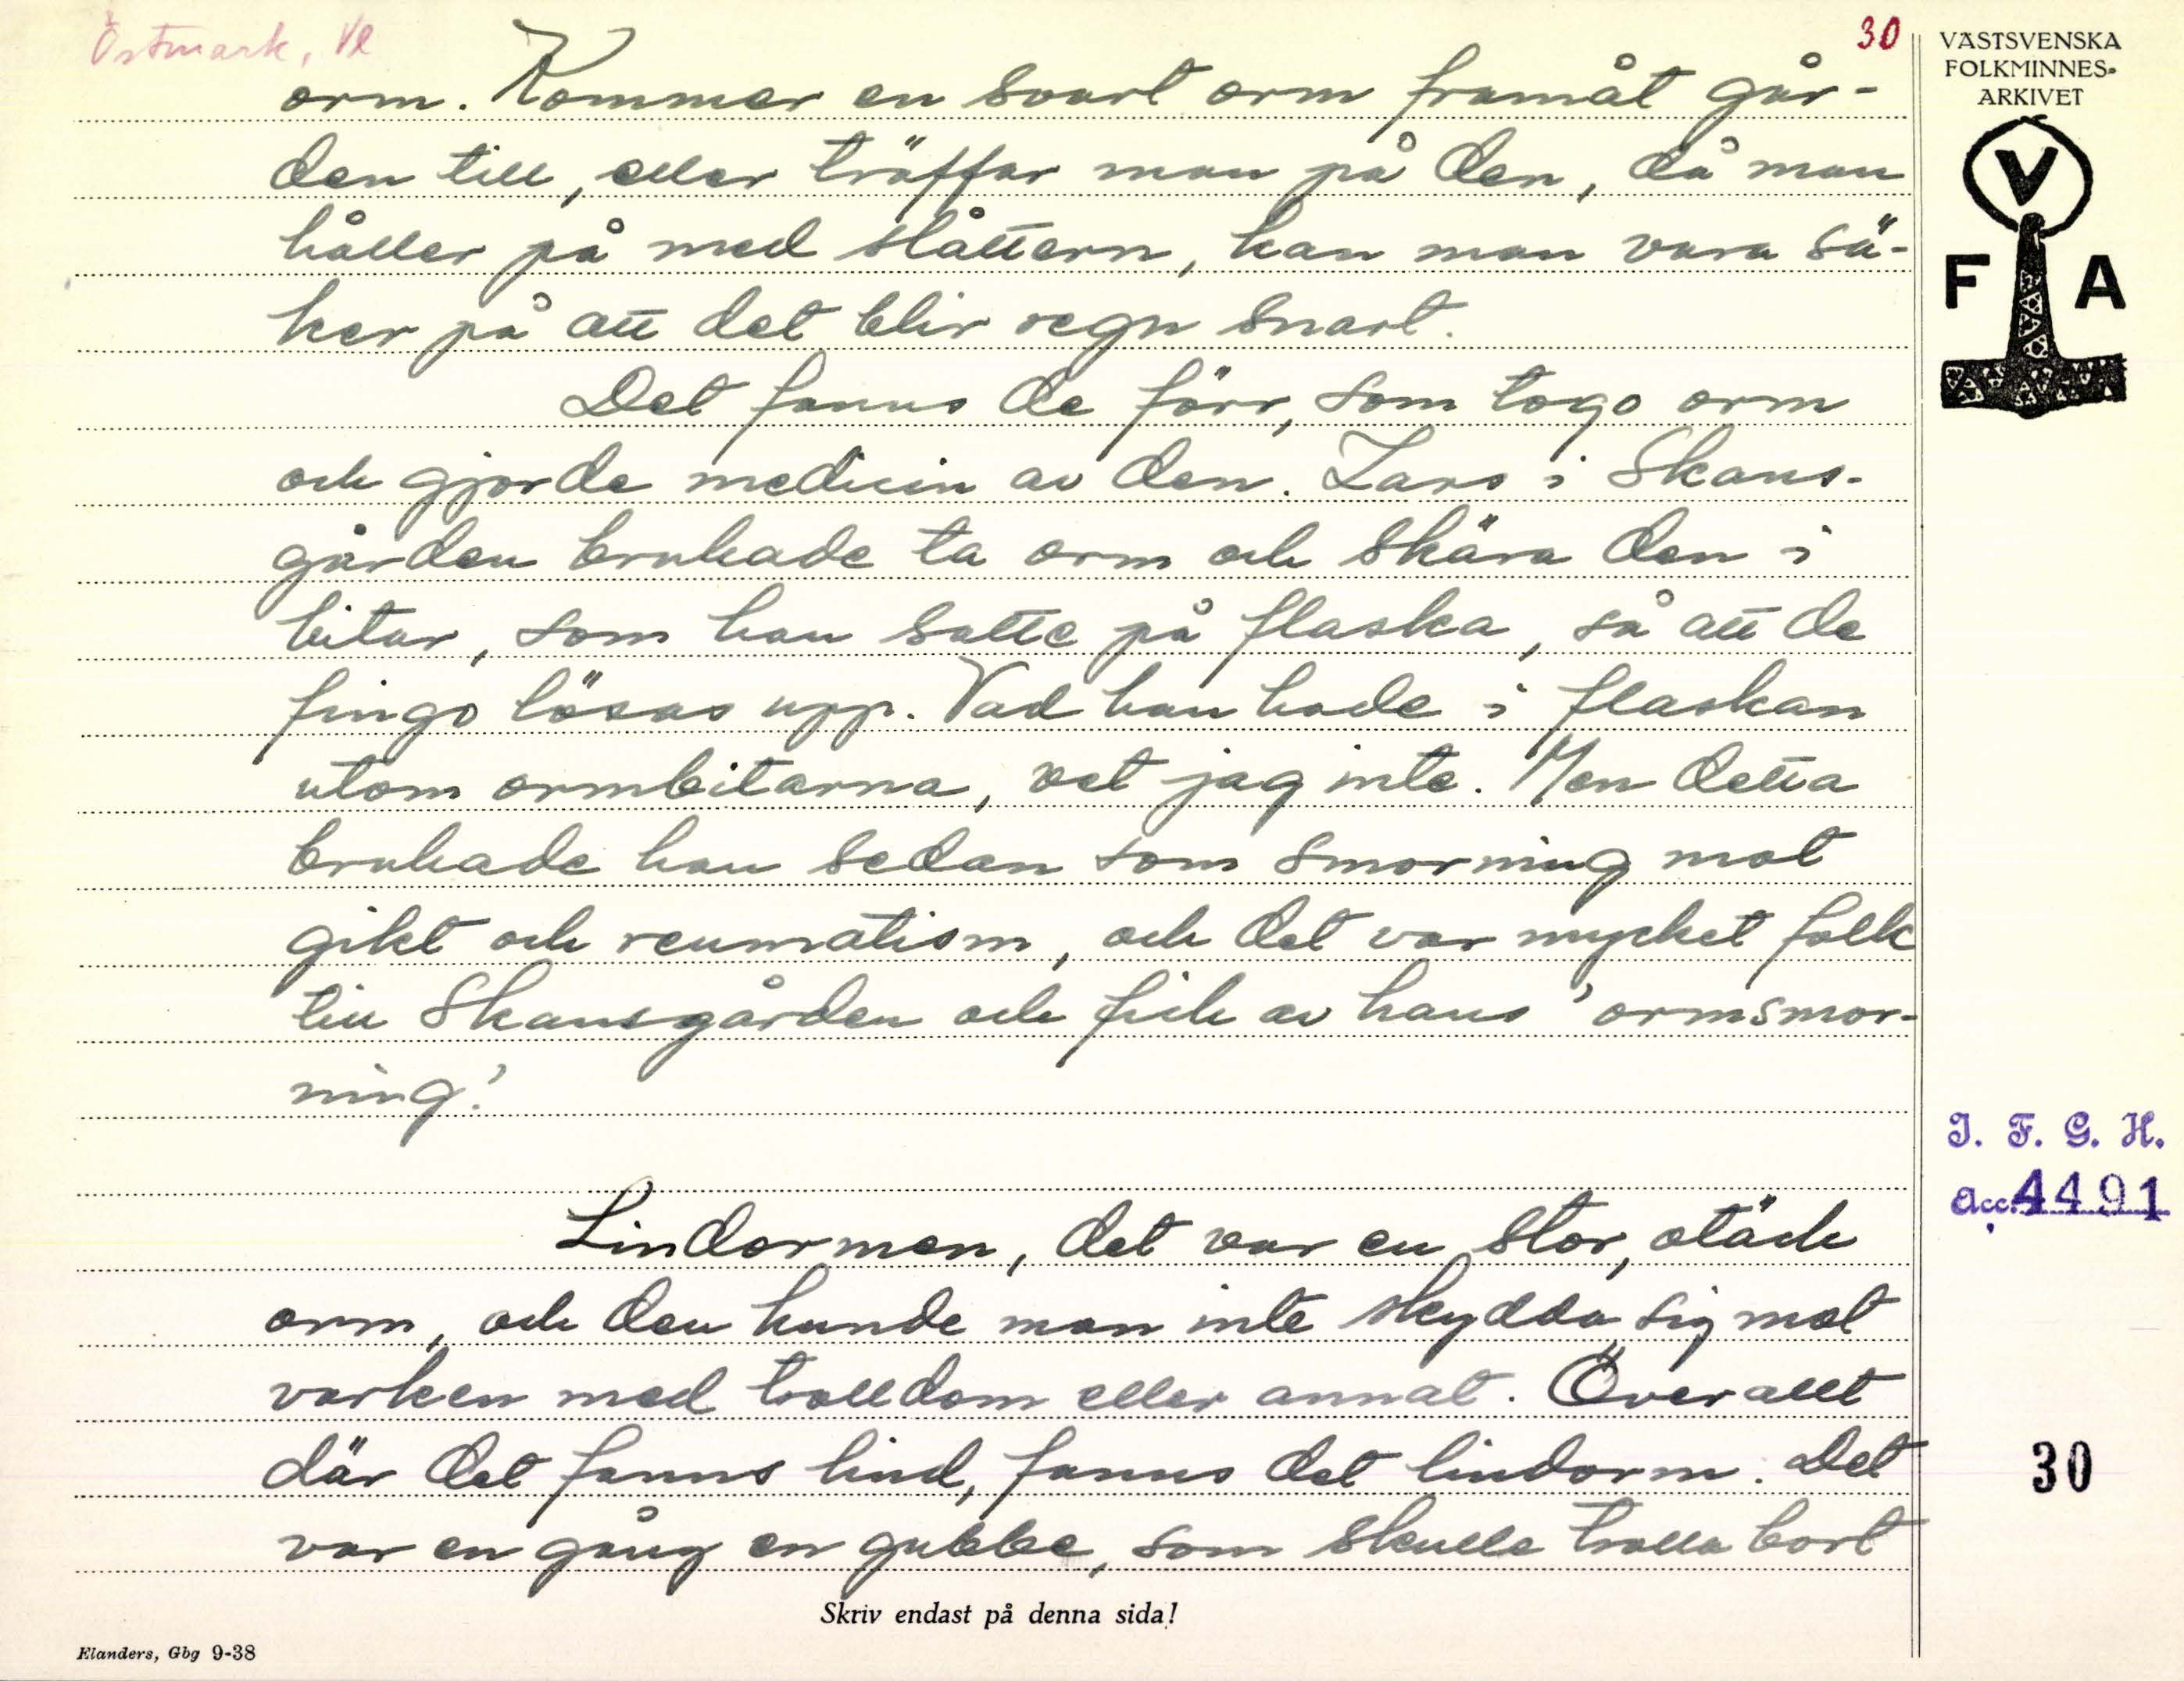 Östmark, Vl
30
orm. Kommer en svart orm framåt går-
den till, eller träffar man på den, då man
håller på med slåttern, kan man vara sä-
ker på att det blir regn snart.
Det fanns de förr, som togo orm
och gjorde medicin av den. Lars i Skans-
gården brukade ta orm och skära den i
bitar, som han satte på flaska, så att de
fingo lösas upp. Vad han hade i flaskan
utom ormbitarna, vet jag inte. Men detta
brukade han sedan som smorning mot
gikt och reumatism, och det var mycket folk
till Skansgården och fick av hans 'ormsmor-
ning.'
Lindormen, det var en stor, otäck
orm, och den kunde man inte skydda sig mot
varken med trolldom eller annat. Överallt
där det fanns lind, fanns det lindorm. Det
var en gång en gubbe, som skulle trolla bort
Skriv endast på denna sida!
Elanders, Gbg 9-38
VÄSTSVENSKA
FOLKMINNES-
ARKIVET
V
F A
I. F. G. H.
acc. 4491
30